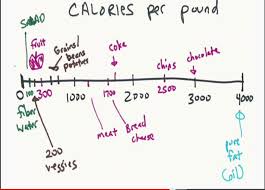 CALORIES per pound
SALAD
fruit
Grains/
beans
potatoes
coke
chips
chocolate
0
100
300
1000
1700
2000
2500
3000
4000
fiber
water
200
veggies
meat
Bread
cheese
pure
fat
(oil)